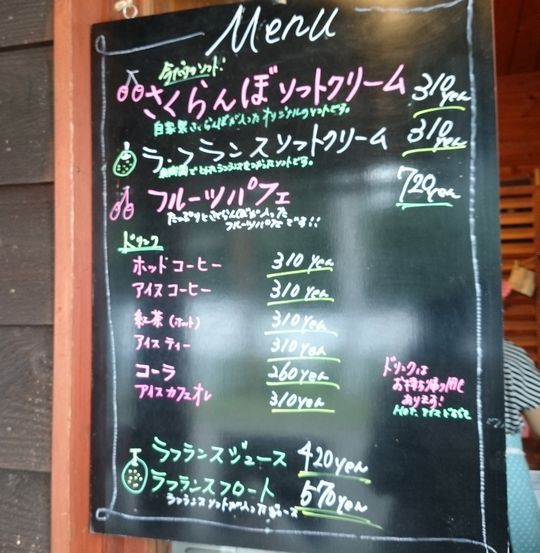 Menu
さくらんぼソフトクリーム 310yen
自家製さくらんぼが入ったオリジナルのソフトです。
ラ・フランスソフトクリーム 310yen
フルーツパフェ 720yen
たっぷりとさくらんぼが入った
フルーツパフェです!!
ドリンク
ホットコーヒー 310yen
アイスコーヒー 310yen
紅茶(ホット) 310yen
アイスティー 310yen
コーラ 260yen
アイスカフェオレ 310yen
ドリンクは
お持ち帰り用も
あります!
ラフランスジュース 420yen
ラフランスフロート 570yen
ラフランスソフトが入ったジュース